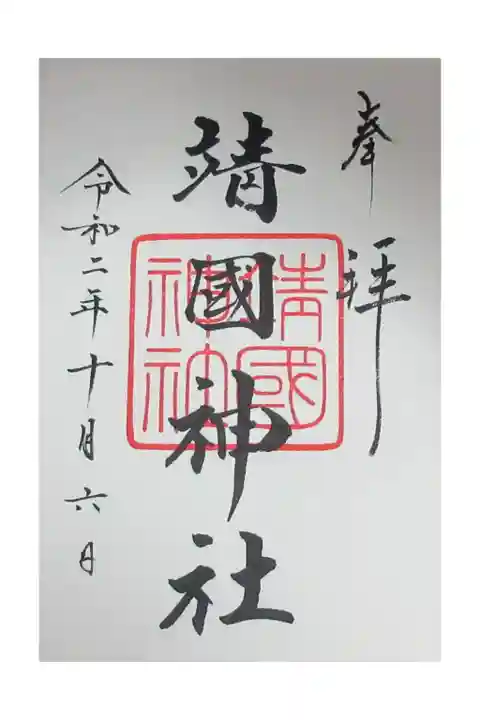 奉拝
靖國神社
靖國
神社
令和二年十月六日